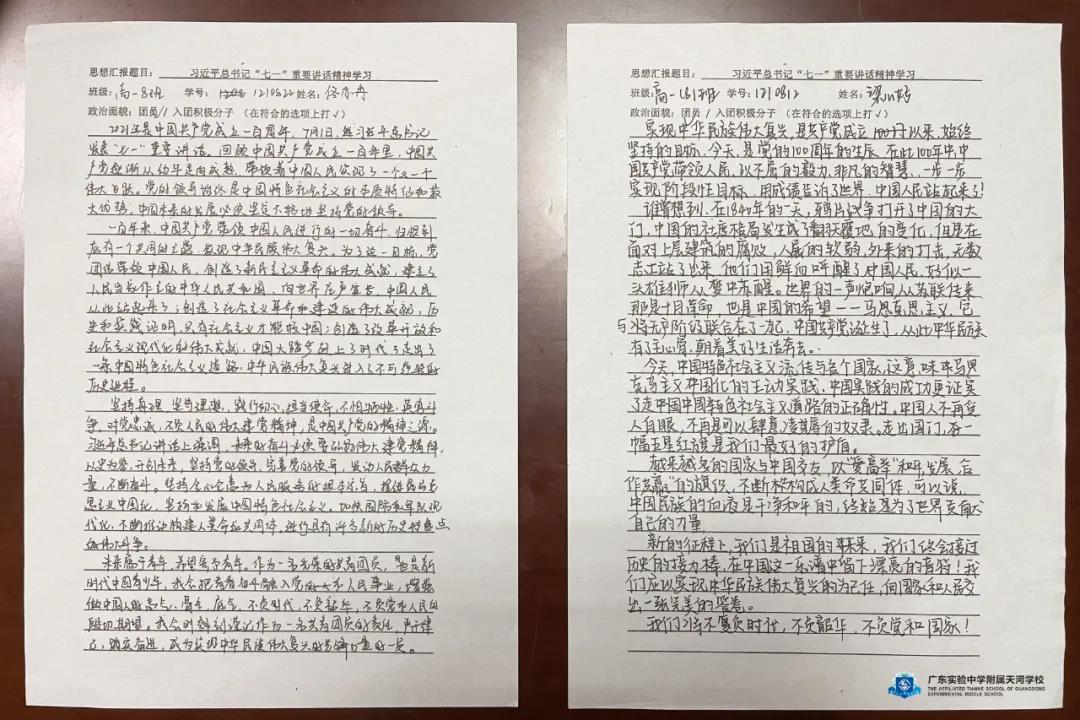 思想汇报题目： 习近平总书记“七一”重要讲话精神学习
班级：高一8班 学号： 1210822 姓名：
政治面貌：团员/入团积极分子 （在符合的选项上打√）
2021年是中国共产党成立一百周年，7月1日，
发表“七一”重要讲话，回顾中国共产党成立一百年里，中国共
产党逐渐从幼年走向成熟，带领着中国人民实现了一个又一个
伟大飞跃。党的领导始终是中国特色社会主义的本质特征和最
大优势，中国未来的发展必须坚定不移地坚持党的领导。
一百年来，中国共产党带领中国人民进行的一切奋斗，归根到
底有一个共同的主题，实现中华民族伟大复兴。为了这一目标，党
团结带领中国人民，创造了新民主主义革命的伟大成就，建立了
人民当家作主的中华人民共和国，向世界庄严宣告，中国人民
从此站起来了；创造了社会主义革命和建设的伟大成就，历
史和实践证明，只有社会主义才能救中国；创造了改革开放和
社会主义现代化的伟大成就，中国大踏步赶上了时代；走出了
一条中国特色社会主义道路，中华民族伟大复兴进入了不可逆转的
历史进程。
坚持真理、坚守理想，践行初心、担当使命，不怕牺牲、英勇斗
争，对党忠诚、不负人民的伟大建党精神，是中国共产党的精神之源。
习近平总书记讲话上强调，未来的奋斗必须要弘扬伟大建党精神，
以史为鉴，开创未来，坚持党的领导，完善党的领导，发动人民群众力
量，不断奋斗。坚持全心全意为人民服务的根本宗旨，推进马克
思主义中国化，坚持和发展中国特色社会主义，加快国防和军队现
代化，不断推动构建人类命运共同体，进行具有许多新的历史特点
的伟大斗争。
未来属于青年，希望寄予青年。作为一名光荣的共青团员，
时代中国青少年，我会把青春奋斗融入党的 人民事业，增强
做中国人的志气、骨气、底气，不负时代，不负韶华，不负党和人民的
殷切期望。我会时刻谨记作为一名共青团员的责任，
踏实奋进，成为实现中华民族伟大复兴的先锋力量的一员。
思想汇报题目： 习近平总书记“七一”重要讲话精神学习
班级：高一（8）班 学号：1210812 姓名：
政治面貌：团员/入团积极分子 （在符合的选项上打√）
实现中华民族伟大复兴，是共产党成立100年以来，始终
坚持的目标。今天，是党的100周年的生辰，在此100年中，中
国共产党带领人民，以不屈的毅力，非凡的智慧，一步一步
实现阶段性目标，用成绩告诉了世界，中国人民站起来了！
谁曾想到，在1840年的一天，鸦片战争打开了中国的大
门，中国的社度格局发生成了翻天覆地的变化，但是在
面对上层建筑的腐败，人民的软弱，外来的打击，无数
志士站了出来，他们用鲜血呼醒了中国人民，好似一
头雄狮从梦中苏醒。世界的一声炮响从苏联传来
那是十月革命，也是中国的希望——马思克思主义，它
与将无产阶级联合在了一起，中国共产党诞生了，从此中华民族
有了主心骨，朝着美好生活奔去。
今天，中国特色社会主义流传与各个国家，这意味中马克
克思主义中国化的生动实践，中国实践的成功更证实
了走中国中国特色社会主义道路的正确性。中国人不再受
人白眼，不再是可以肆意凌辱的奴隶。走出国门，有一
幅五星红旗是我们最好的护盾。
越来越多的国家与中国交友，以“爱高举”和平，发展，合
作共赢”的旗帜，不断构构成人类命共同体，可以说，
中国民族的血液是干净和平的，终始是为了世界贡献
自己的力量
新的征程下，我们是祖国的未来，我们终会接过
历史的接力棒，在中国这一乐谱中留下漂亮的音符！我
们应以实现中华民族伟大复兴的为己任，向国家和人民交
出一张完美的答卷。
我们将不负时代，不负韶华，不负党和国家！
广东实验中学附属天河学校
THE AFFILIATED TIANHE SCHOOL OF GUANGDONG
EXPERIMENTAL MIDDLE SCHOOL